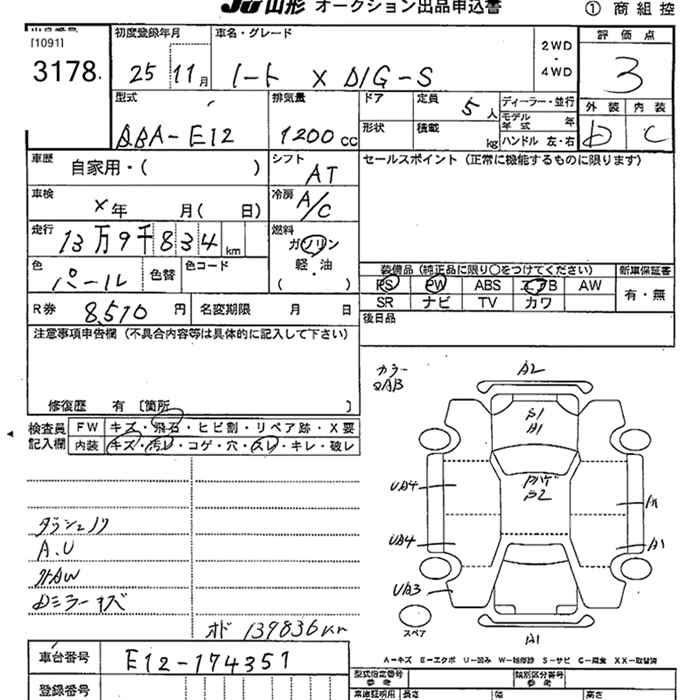 JU山形 オークション出品申込書
① 商組控
出品番号
[1091]
3178
初度登録年月
25 11月
車名・グレード
ノート X DIG-S
2WD
・
4WD
評価点
3
外装 内装
D C
型式
DBA-E12
排気量
1200cc
ドア
形状
定員 5人
積載 kg
ディーラー・並行
モデル年式 年
ハンドル 左・右
車歴
自家用・( )
シフト
AT
セールスポイント(正常に機能するものに限ります)
車検
×年 月( 日)
冷房
A/C
走行
13万9千834km
燃料
ガソリン
軽・油
( )
色
パール
色替
色コード
装備品(純正品に限り○をつけてください)
新車保証書
PS PW ABS エアB AW
有・無
SR ナビ TV カワ
R券 8,510円
名変期限 月 日
後日品
注意事項申告欄(不具合内容等は具体的に記入して下さい)
修復歴 有 [箇所 ]
検査員記入欄
FW キズ・飛石・ヒビ割・リペア跡・X要
内装 キズ・汚レ・コゲ・穴・スレ・キレ・破レ
カラー
QAB
A2
B1
A1
Pハゲ
B2
UB4
UB4
UB3
A1
A1
スペア
ダッシュノリ
A.U
Dミラーキズ
オド 139836km
A－キズ E－エクボ U－凹み W－補修跡 S－サビ C－腐食 XX－取替済
車台番号
E12-174351
登録番号
型式指定番号
参考
類別区分番号
参考
長さ
幅
高さ